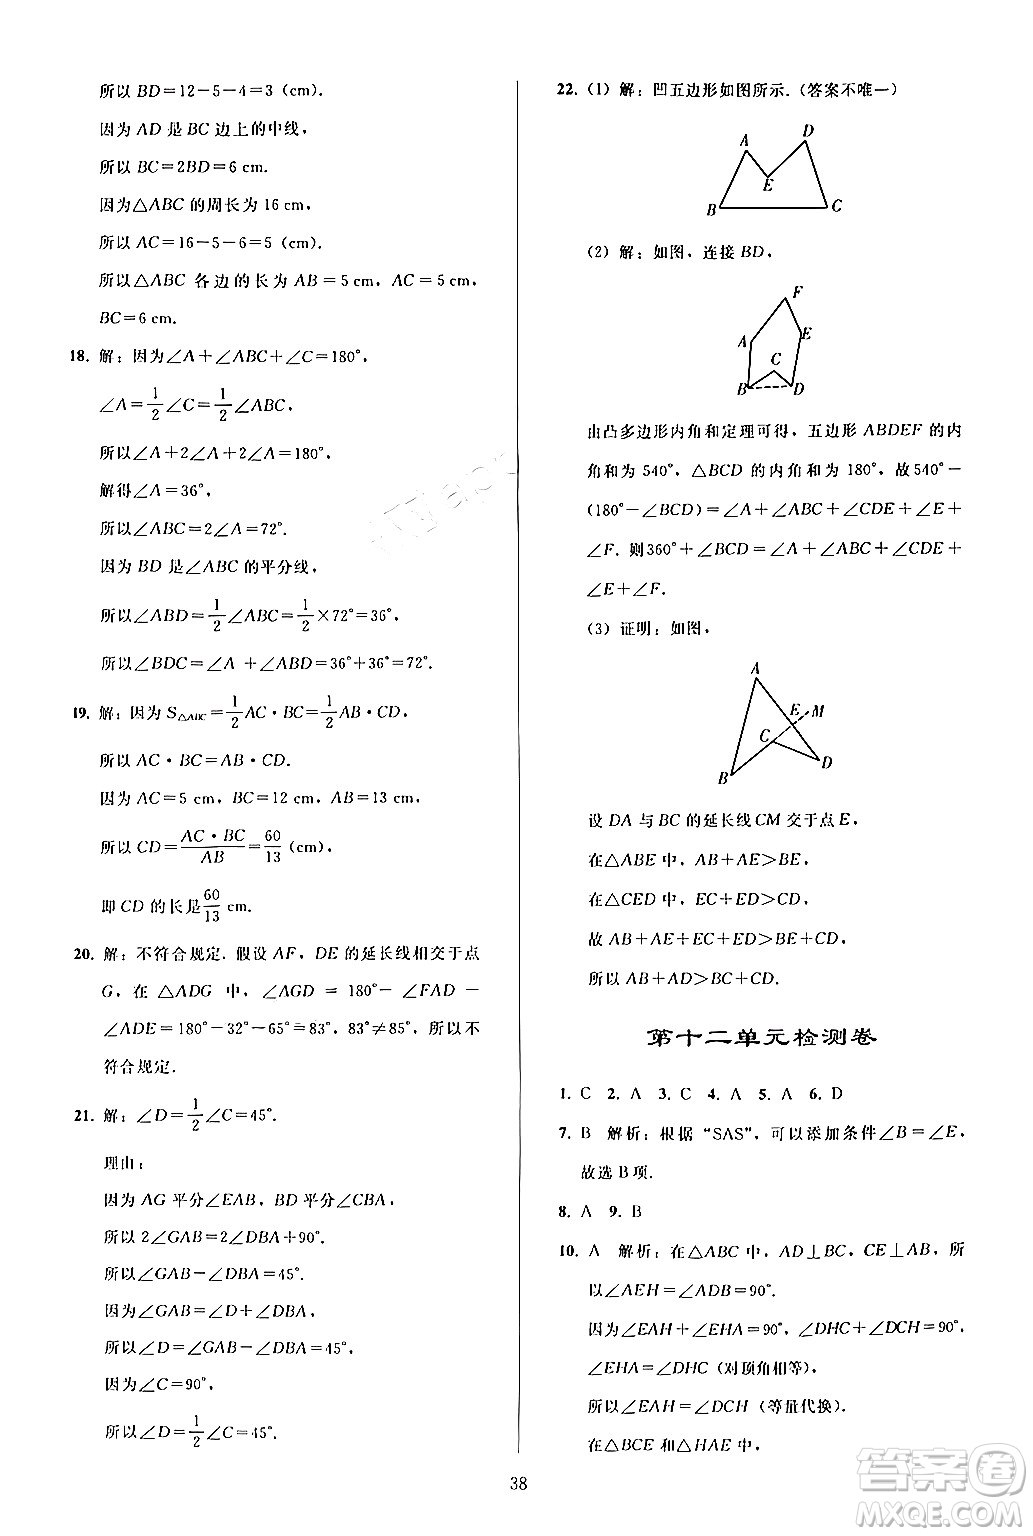 所以 BD=12-5-4=3 (cm).
因为 AD 是 BC 边上的中线,
所以 BC=2BD=6 cm.
因为△ABC 的周长为 16 cm,
所以 AC=16-5-6=5 (cm).
所以△ABC 各边的长为 AB=5 cm, AC=5 cm,
BC=6 cm.
18. 解:因为∠A+∠ABC+∠C=180°,
∠A=1/2∠C=1/2∠ABC,
所以∠A+2∠A+2∠A=180°,
解得∠A=36°,
所以∠ABC=2∠A=72°.
因为 BD 是∠ABC 的平分线,
所以∠ABD=1/2∠ABC=1/2×72°=36°,
所以∠BDC=∠A+∠ABD=36°+36°=72°.
19. 解:因为 S△ABC=1/2AC·BC=1/2AB·CD,
所以 AC·BC=AB·CD.
因为 AC=5 cm, BC=12 cm, AB=13 cm,
所以 CD=AC·BC/AB=60/13(cm),
即 CD 的长是60/13 cm.
20. 解:不符合规定. 假设 AF, DE 的延长线相交于点
G, 在△ADG 中, ∠AGD=180°-∠FAD-
∠ADE=180°-32°-65°=83°, 83°≠85°, 所以不
符合规定.
21. 解:∠D=1/2∠C=45°.
理由:
因为 AG 平分∠EAB, BD 平分∠CBA,
所以 2∠GAB=2∠DBA+90°,
所以∠GAB-∠DBA=45°.
因为∠GAB=∠D+∠DBA,
所以∠D=∠GAB-∠DBA=45°.
因为∠C=90°,
所以∠D=1/2∠C=45°.
22. (1) 解:凹五边形如图所示.(答案不唯一)
A D
E
B C
(2) 解:如图, 连接 BD,
F
A E
C
B D
由凸多边形内角和定理可得, 五边形 ABDEF 的内
角和为 540°, △BCD 的内角和为 180°, 故 540°-
(180°-∠BCD)=∠A+∠ABC+∠CDE+∠E+
∠F. 则 360°+∠BCD=∠A+∠ABC+∠CDE+
∠E+∠F.
(3) 证明:如图,
A
E M
C
B D
设 DA 与 BC 的延长线 CM 交于点 E,
在△ABE 中, AB+AE>BE,
在△CED 中, EC+ED>CD,
故 AB+AE+EC+ED>BE+CD,
所以 AB+AD>BC+CD.
第十二单元检测卷
1. C 2. A 3. C 4. A 5. A 6. D
7. B 解析:根据“SAS”, 可以添加条件∠B=∠E,
故选 B 项.
8. A 9. B
10. A 解析:在△ABC 中, AD⊥BC, CE⊥AB, 所
以∠AEH=∠ADB=90°.
因为∠EAH+∠EHA=90°, ∠DHC+∠DCH=90°,
∠EHA=∠DHC (对顶角相等),
所以∠EAH=∠DCH (等量代换).
在△BCE 和△HAE 中,
38
答案圈
MXQE.COM